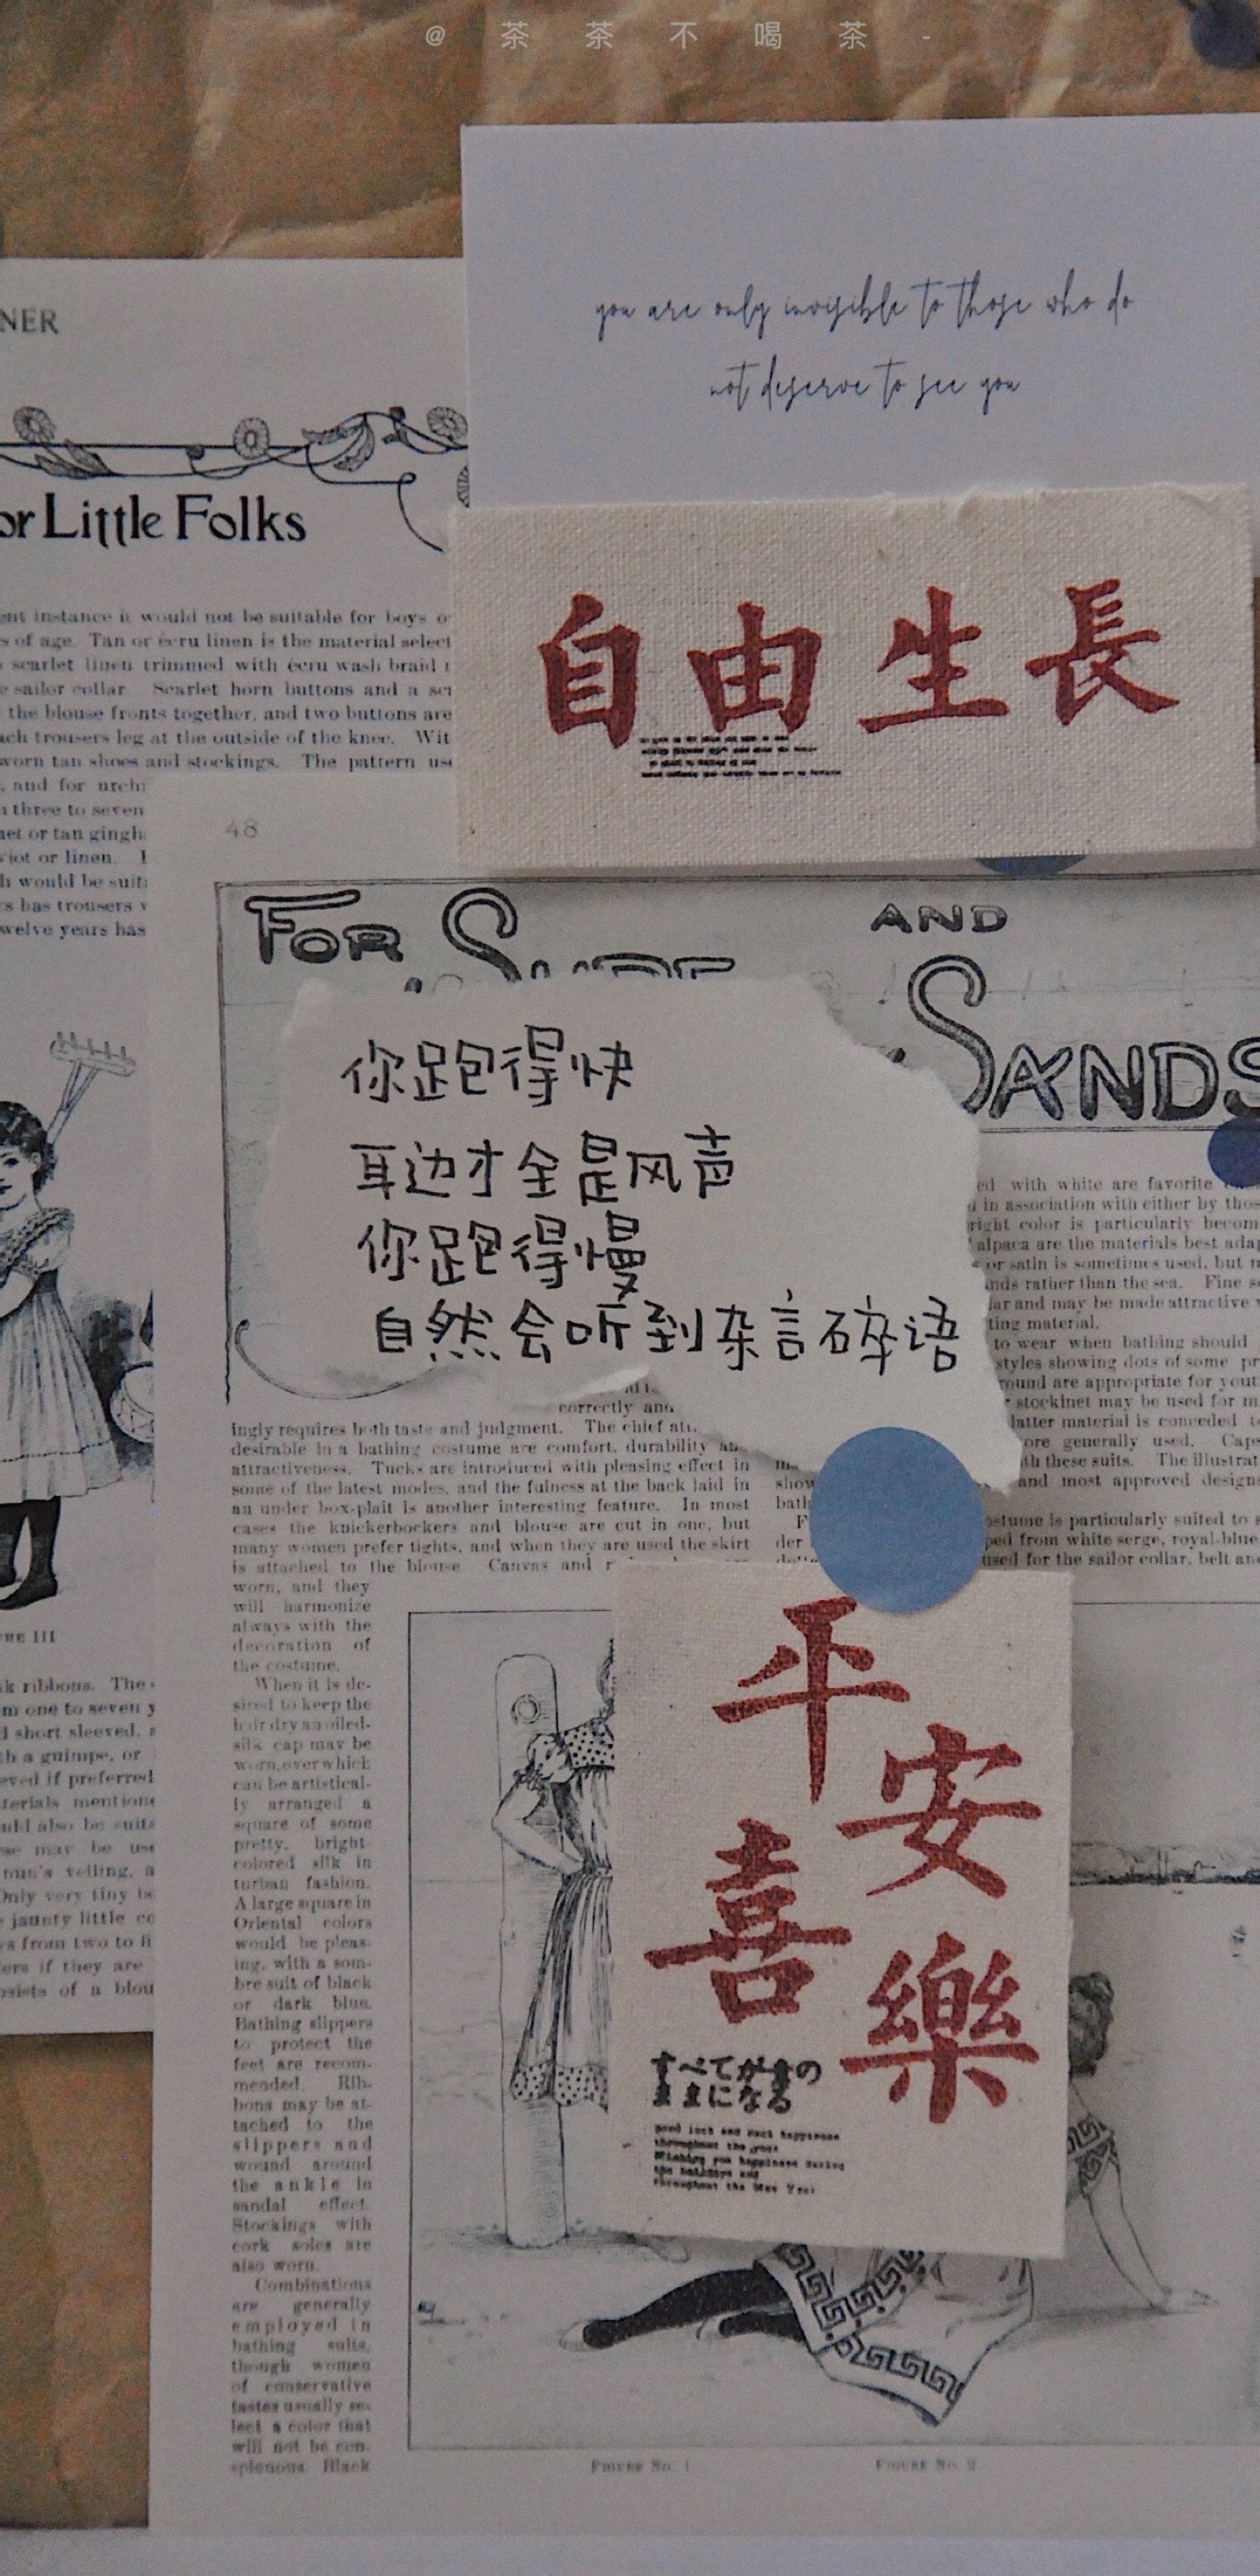 @茶茶不喝茶-
you are only invisible to those who do
not deserve to see you
NER
or Little Folks
自由生長
ent instance it would not be suitable for boys o
s of age. Tan or écru linen is the material select
scarlet linen trimmed with écru wash braid
e sailor collar Scarlet horn buttons and a
the blouse fronts together, and two buttons are
ach trousers leg at the outside of the knee. Wit
worn tan shoes and stockings. The pattern us
, and for urchi
three to seven
net or tan gingh
viot or linen.
h would be suit
rs has trousers
twelve years has
48
FOR
AND
SANDS
你跑得快
耳边才全是风声
你跑得慢
自然会听到杂言碎语
ed with white are favorite
in association with either by thos
right color is particularly becom
alpaca are the materials best adap
or satin is sometimes used, but
nds rather than the sea. Fine
lar and may be made attractive
ting material.
to wear when bathing should
styles showing dots of some pr
round are appropriate for yout
stockinet may be used for m
latter material is conceded
ore generally used. Cape
th these suits. The illustrat
and most approved designs
correctly and
ingly requires both taste and judgment. The chief
desirable in a bathing costume are comfort, durability
attractiveness. Tucks are introduced with pleasing effect in
some of the latest modes, and the fulness at the back laid in
an under box-plait is another interesting feature. In most
cases the knickerbockers and blouse are cut in one, but
many women prefer tights, and when they are used the skirt
is attached to the blouse Canvas and
show
bath
F
der
ostume is particularly suited to
ped from white serge, royal-blue
used for the sailor collar, belt and
worn, and they
will harmonize
always with the
decoration of
the costume.
When it is de-
sired to keep the
hair dry an oiled-
silk cap may be
worn, over which
can be artistical-
ly arranged a
square of some
pretty, bright-
colored silk in
turban fashion.
A large square in
Oriental colors
would be pleas-
ing, with a som-
bre suit of black
or dark blue.
Bathing slippers
to protect the
feet are recom-
mended. Rib-
bons may be at-
tached to the
slippers and
wound around
the ankle in
sandal effect.
Stockings with
cork soles are
also worn.
Combinations
are generally
employed in
bathing suits,
though women
of conservative
tastes usually se-
lect a color that
will not be con-
spicuous. Black
III
k ribbons. The
m one to seven y
d short sleeved,
h a guimpe, or
eved if preferred
terials mention
uld also be suit
se may be us
nun's veiling, a
Only very tiny
jaunty little
s from two to
ers if they are
nsists of a blou
平安
喜樂
すべてが意の
ままになる
good luck and much happiness
throughout the year
Wishing you happiness during
the holidays and
throughout the New Year
FIGURE No. 1
FIGURE No. 2